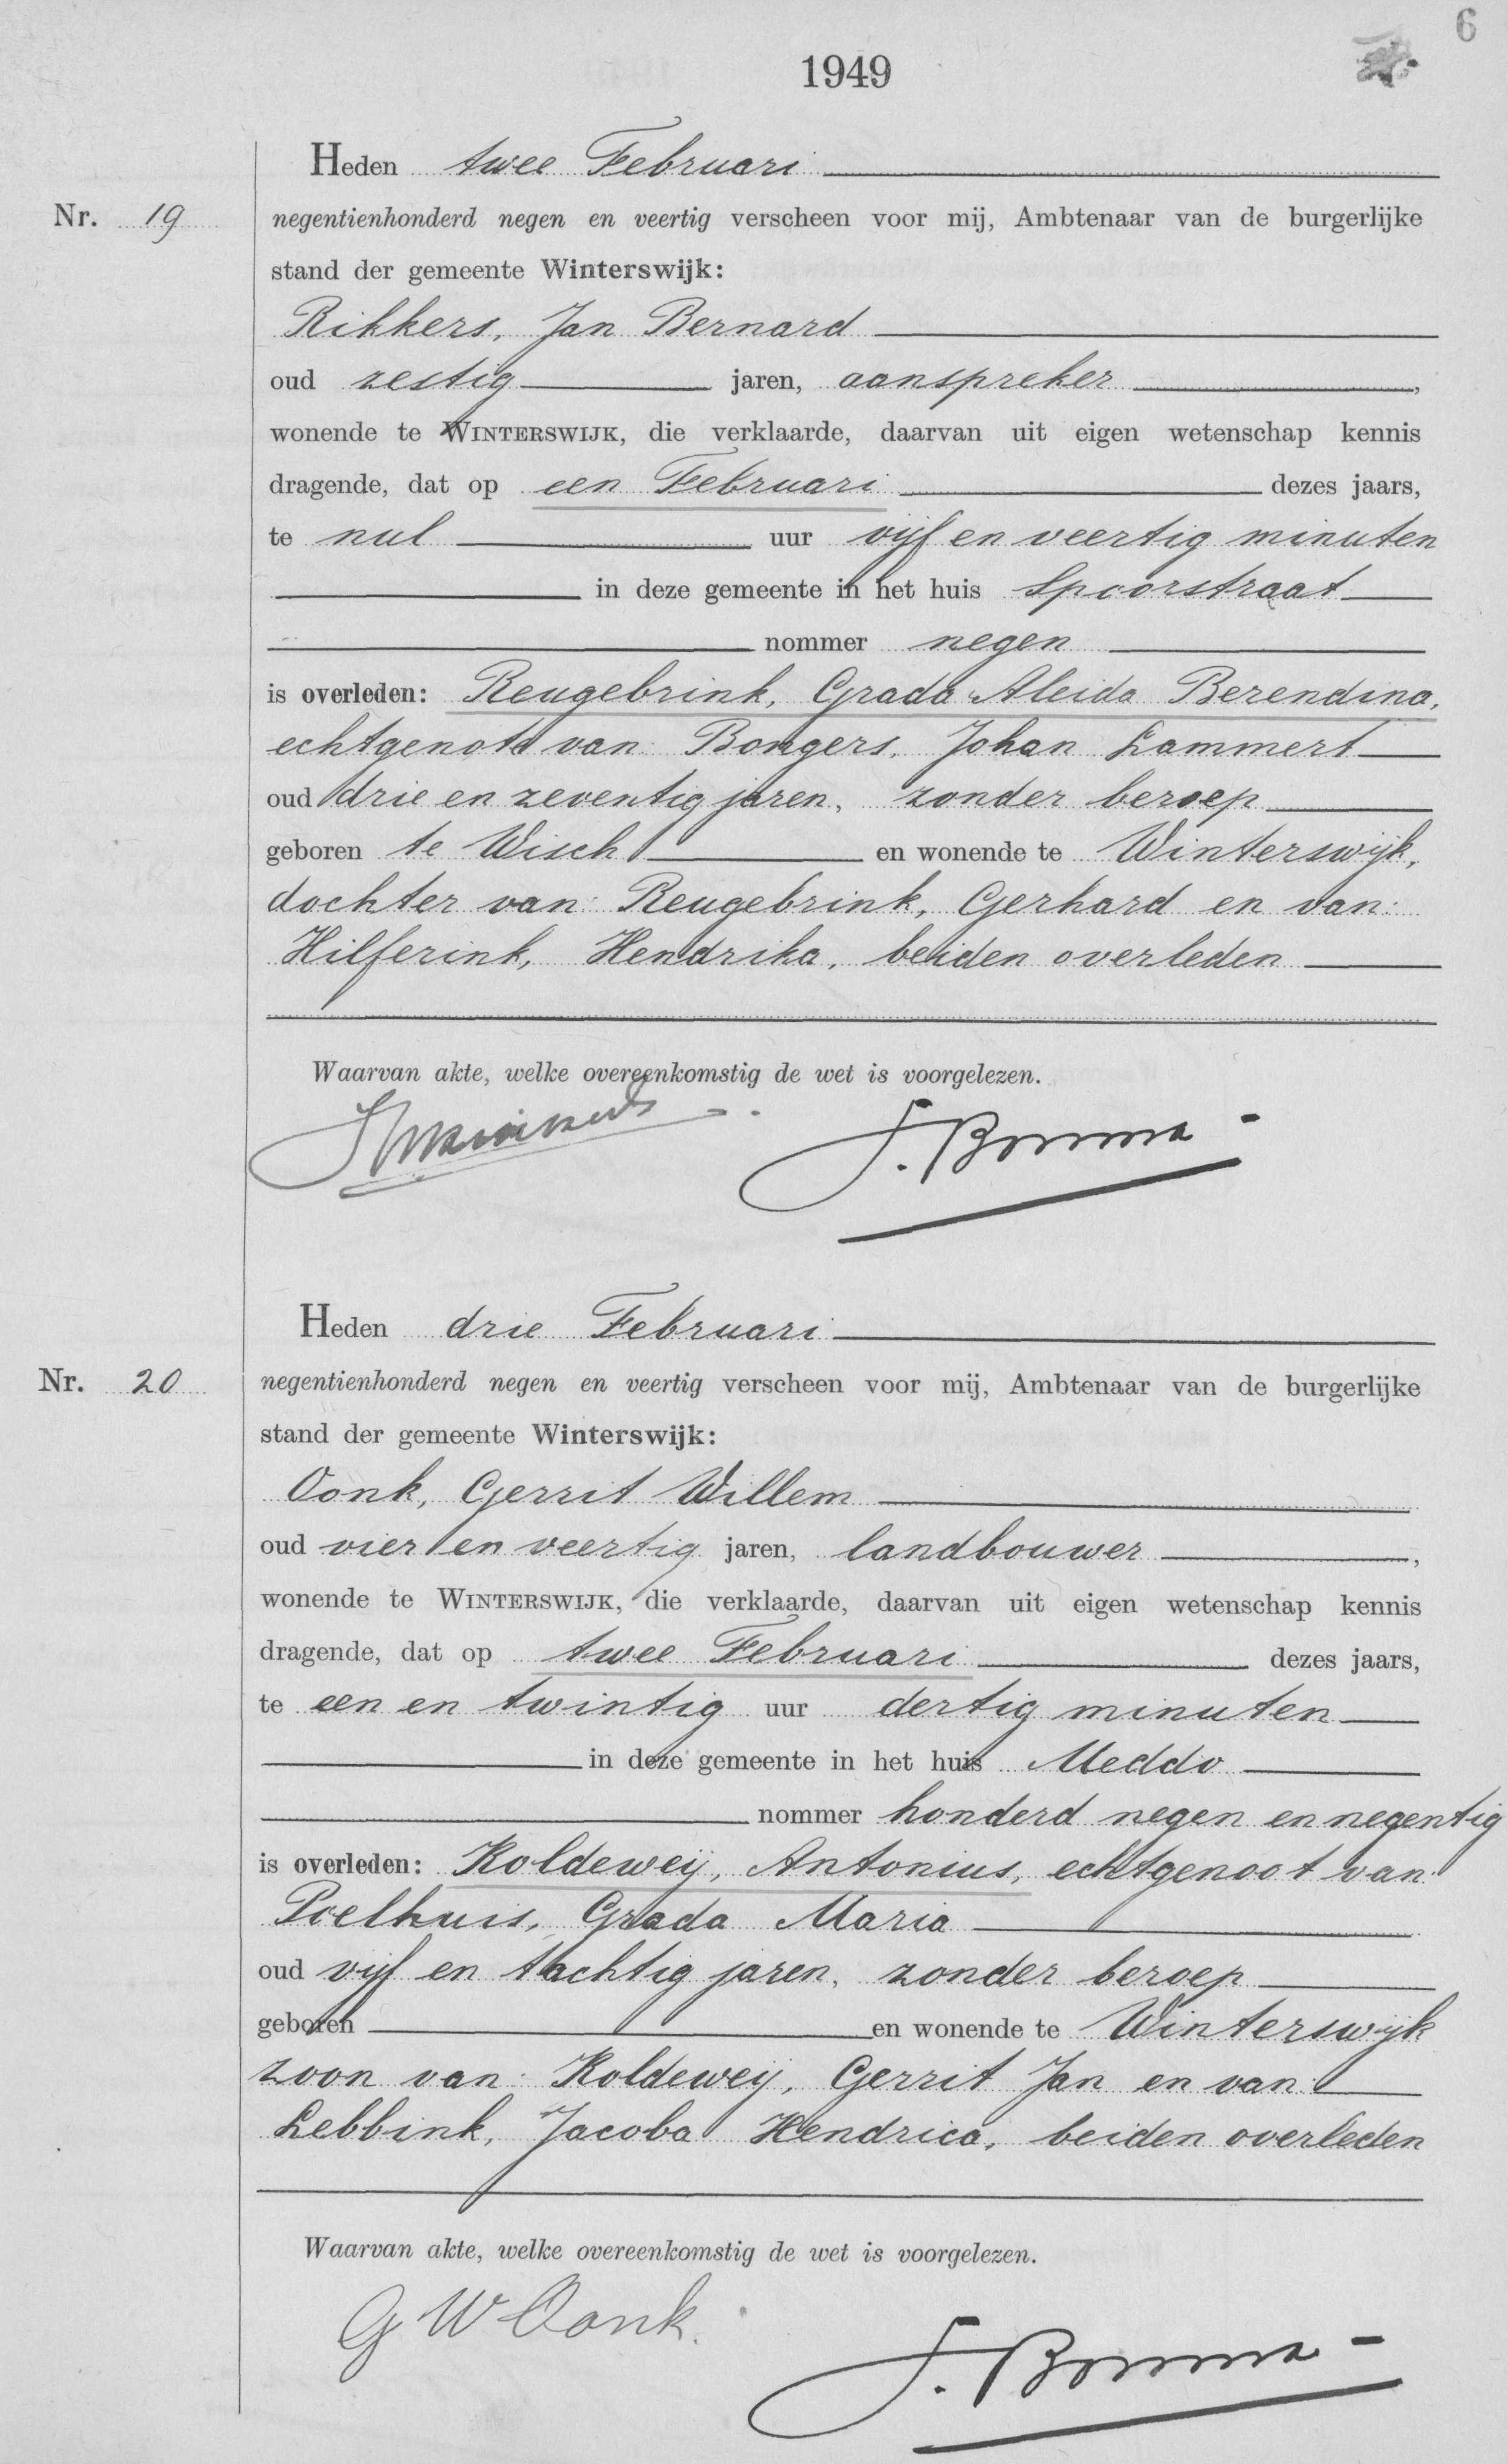 6
1949
Heden twee Februari
Nr. 19 negentienhonderd negen en veertig verscheen voor mij, Ambtenaar van de burgerlijke
stand der gemeente Winterswijk:
Rikkers, Jan Bernard
oud zestig jaren, aanspreker,
wonende te WINTERSWIJK, die verklaarde, daarvan uit eigen wetenschap kennis
dragende, dat op een Februari dezes jaars,
te nul uur vijf en veertig minuten
in deze gemeente in het huis Spoorstraat
nommer negen
is overleden: Reugebrink, Grada Aleida Berendina,
echtgenote van: Bongers, Johan Lammert
oud drie en zeventig jaren, zonder beroep
geboren te Wisch en wonende te Winterswijk,
dochter van: Reugebrink, Gerhard en van:
Hilferink, Hendrika, beiden overleden
Waarvan akte, welke overeenkomstig de wet is voorgelezen.
Heden drie Februari
Nr. 20 negentienhonderd negen en veertig verscheen voor mij, Ambtenaar van de burgerlijke
stand der gemeente Winterswijk:
Oonk, Gerrit Willem
oud vier en veertig jaren, landbouwer,
wonende te WINTERSWIJK, die verklaarde, daarvan uit eigen wetenschap kennis
dragende, dat op twee Februari dezes jaars,
te een en twintig uur dertig minuten
in deze gemeente in het huis Meddo
nommer honderd negen en negentig
is overleden: Koldeweij, Antonius, echtgenoot van:
Poelhuis, Grada Maria
oud vijf en tachtig jaren, zonder beroep
geboren en wonende te Winterswijk
zoon van: Koldeweij, Gerrit Jan en van:
Lebbink, Jacoba Hendrica, beiden overleden
Waarvan akte, welke overeenkomstig de wet is voorgelezen.
G W Oonk.